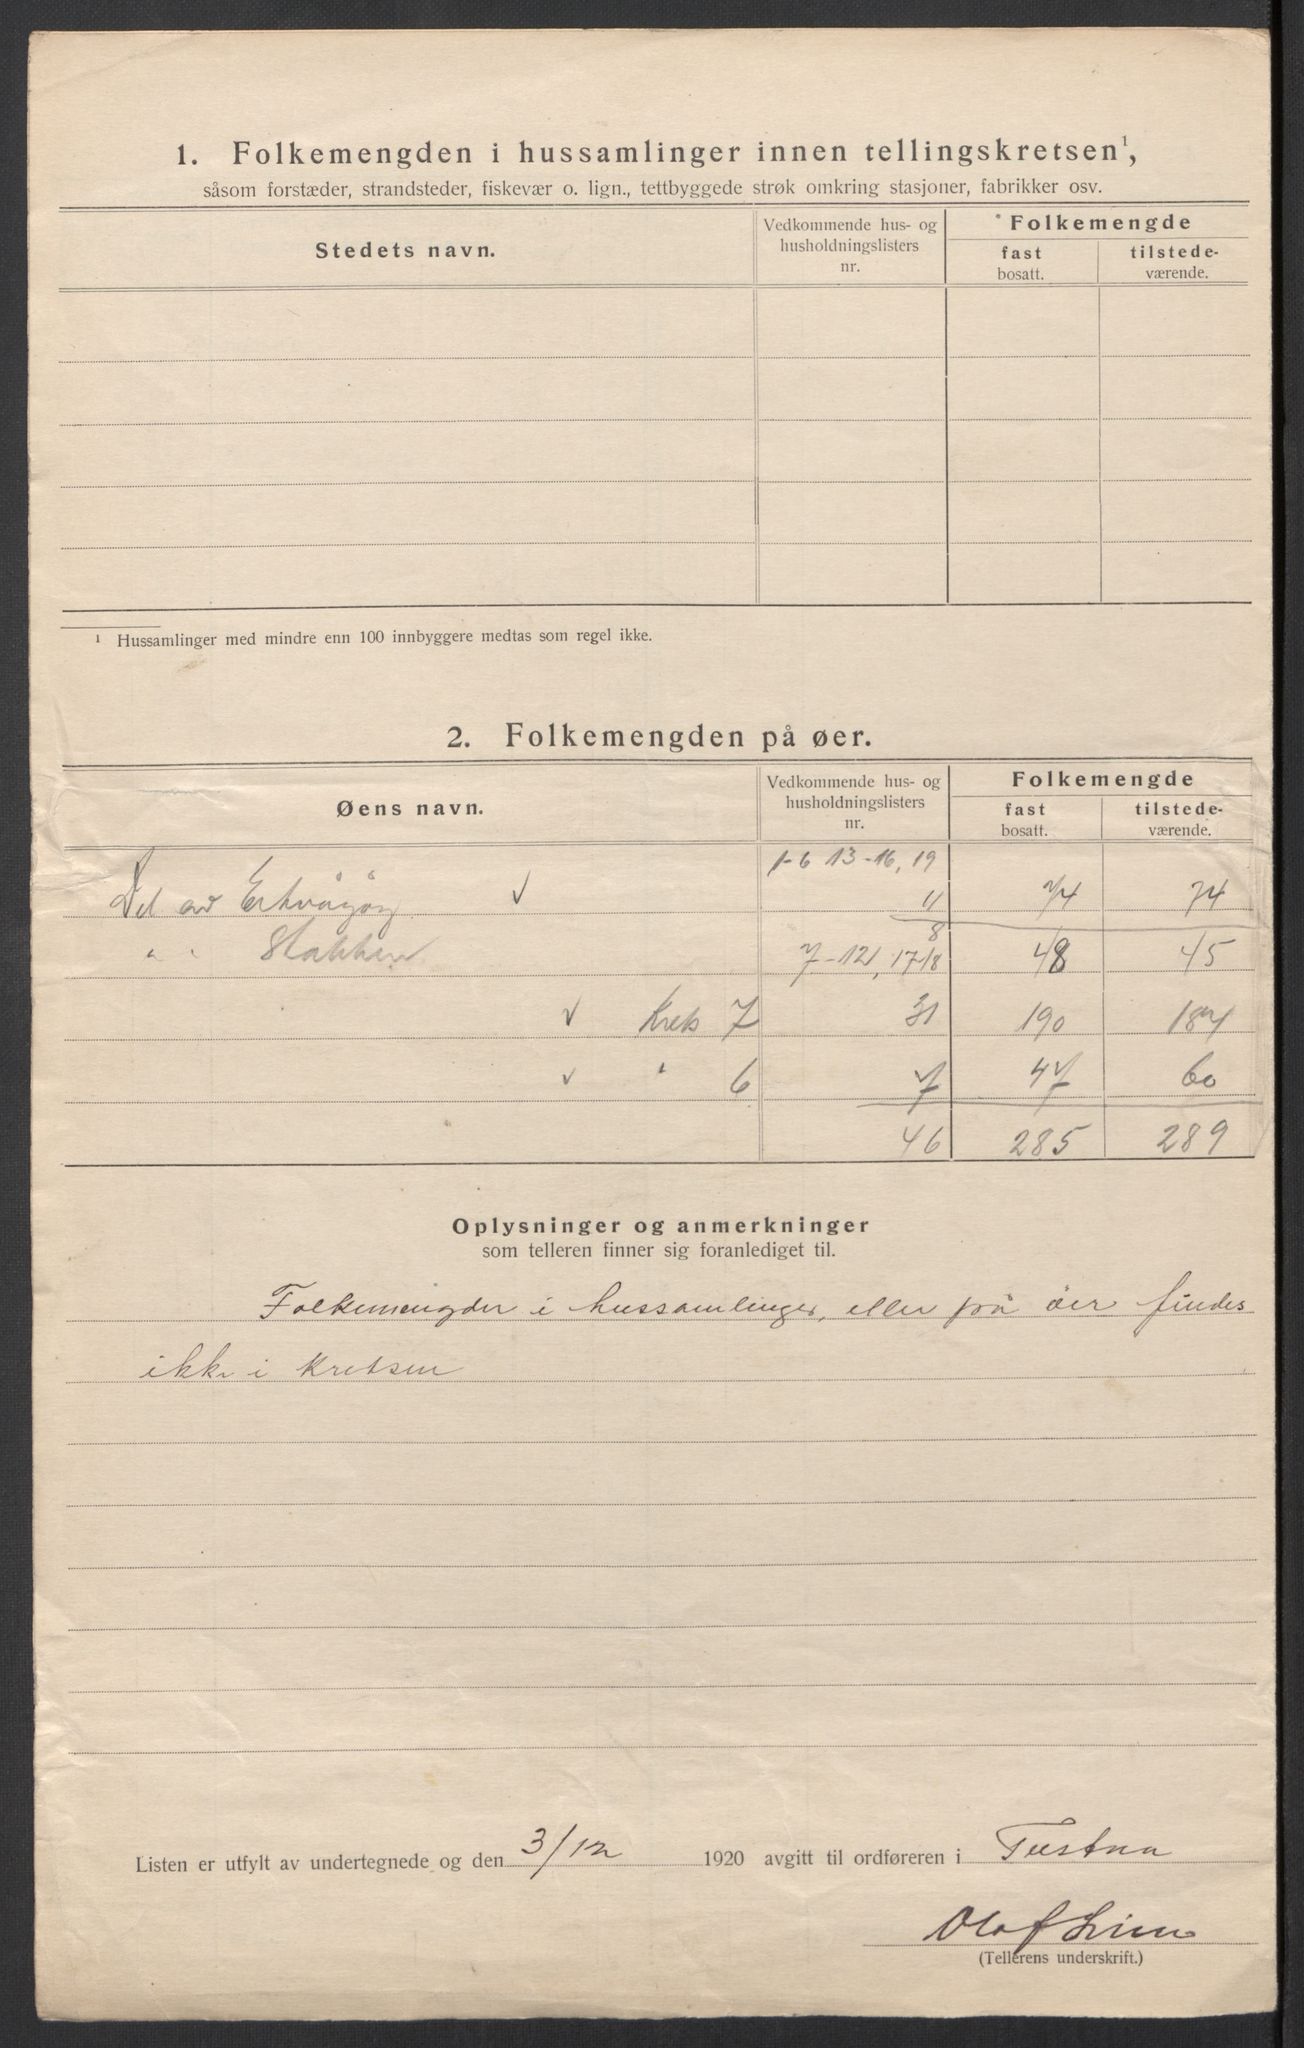 1. Folkemengden i hussamlinger innen tellingskretsen¹,
såsom forstæder, strandsteder, fiskevær o. lign., tettbyggede strøk omkring stasjoner, fabrikker osv.
Stedets navn.
Vedkommende hus- og husholdningslisters nr.
Folkemengde
fast bosatt.
tilstede-værende.
¹ Hussamlinger med mindre enn 100 innbyggere medtas som regel ikke.
2. Folkemengden på øer.
Øens navn.
Vedkommende hus- og husholdningslisters nr.
Folkemengde
fast bosatt.
tilstede-værende.
1-6 13-16, 19
Del av Ertvågöy √ 11 74 74
8
" " Stabben 7-12, 17-18 48 45
√ Krets 7 31 190 184
√ " 6 7 47 60
46 285 289
Oplysninger og anmerkninger
som telleren finner sig foranlediget til.
Folkemengder i hussamlinger, eller på öer findes
ikke i Kretsen
Listen er utfylt av undertegnede og den 3/12 1920 avgitt til ordføreren i Tustna
Olaf
(Tellerens underskrift.)